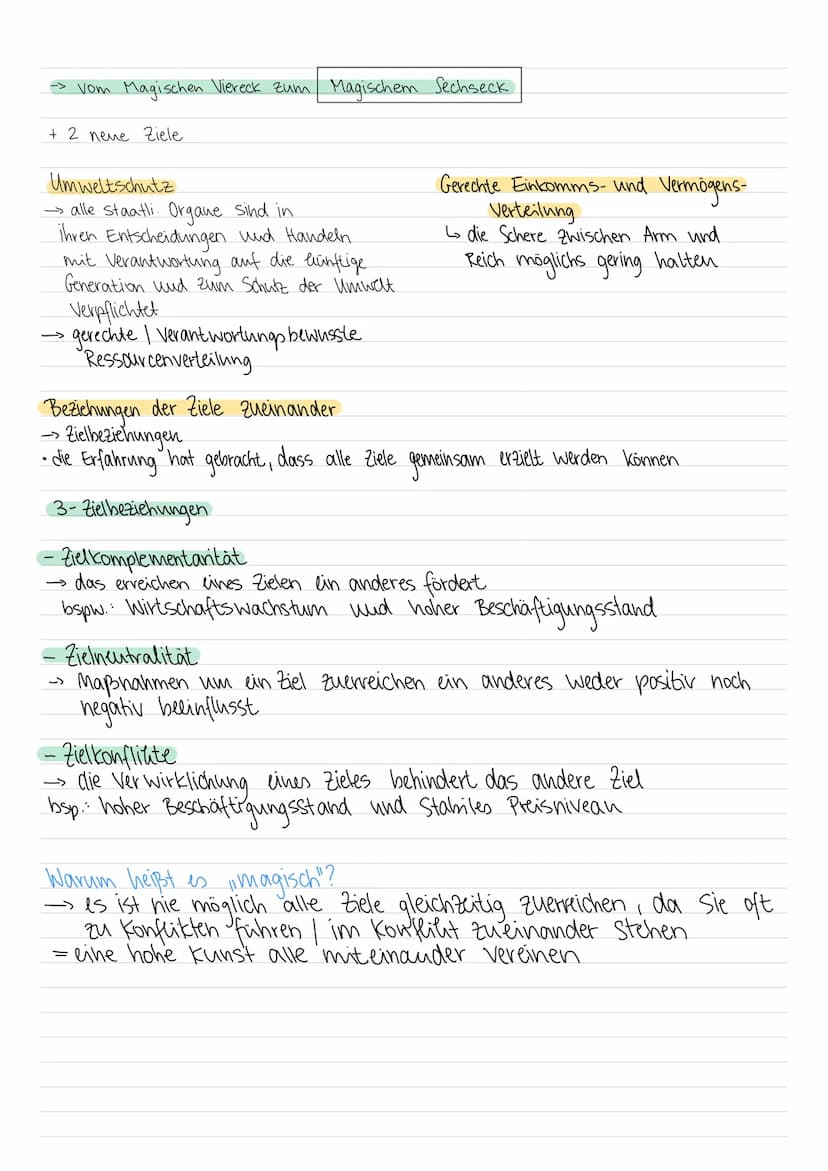 -> Vom Magischen Viereck zum Magischem Sechseck
+ 2 neue Ziele
Umweltschutz
→ alle staatli. Organe sind in
ihren Entscheidungen und Handeln
mit Verantwortung auf die künftige
Generation und zum Schutz der Umwelt
verpflichtet
→ gerechte / Verantwortungsbewusste
Ressourcenverteilung
Gerechte Einkomms- und Vermögens-
verteilung
↳ die Schere zwischen Arm und
Reich möglichs gering halten
Beziehungen der Ziele zueinander
→ Zielbeziehungen
• die Erfahrung hat gebracht, dass alle Ziele gemeinsam erzielt werden können
3- Zielbeziehungen
- Zielkomplementarität
→ das erreichen eines Zielen ein anderes fördert
bspw.: Wirtschaftswachstum und hoher Beschäftigungsstand
- Zielneutralität
→ Maßnahmen um ein Ziel zuerreichen ein anderes weder positiv noch
negativ beeinflusst
- Zielkonflikte
→ die Verwirklichung eines Zieles behindert das andere Ziel
bsp.: hoher Beschäftigungsstand und Stabiles Preisniveau
Warum heißt es „magisch"?
→ es ist nie möglich alle Ziele gleichzeitig zuerreichen, da Sie oft
zu Konflikten führen / im Konflikt zueinander stehen
= eine hohe Kunst alle miteinander vereinen